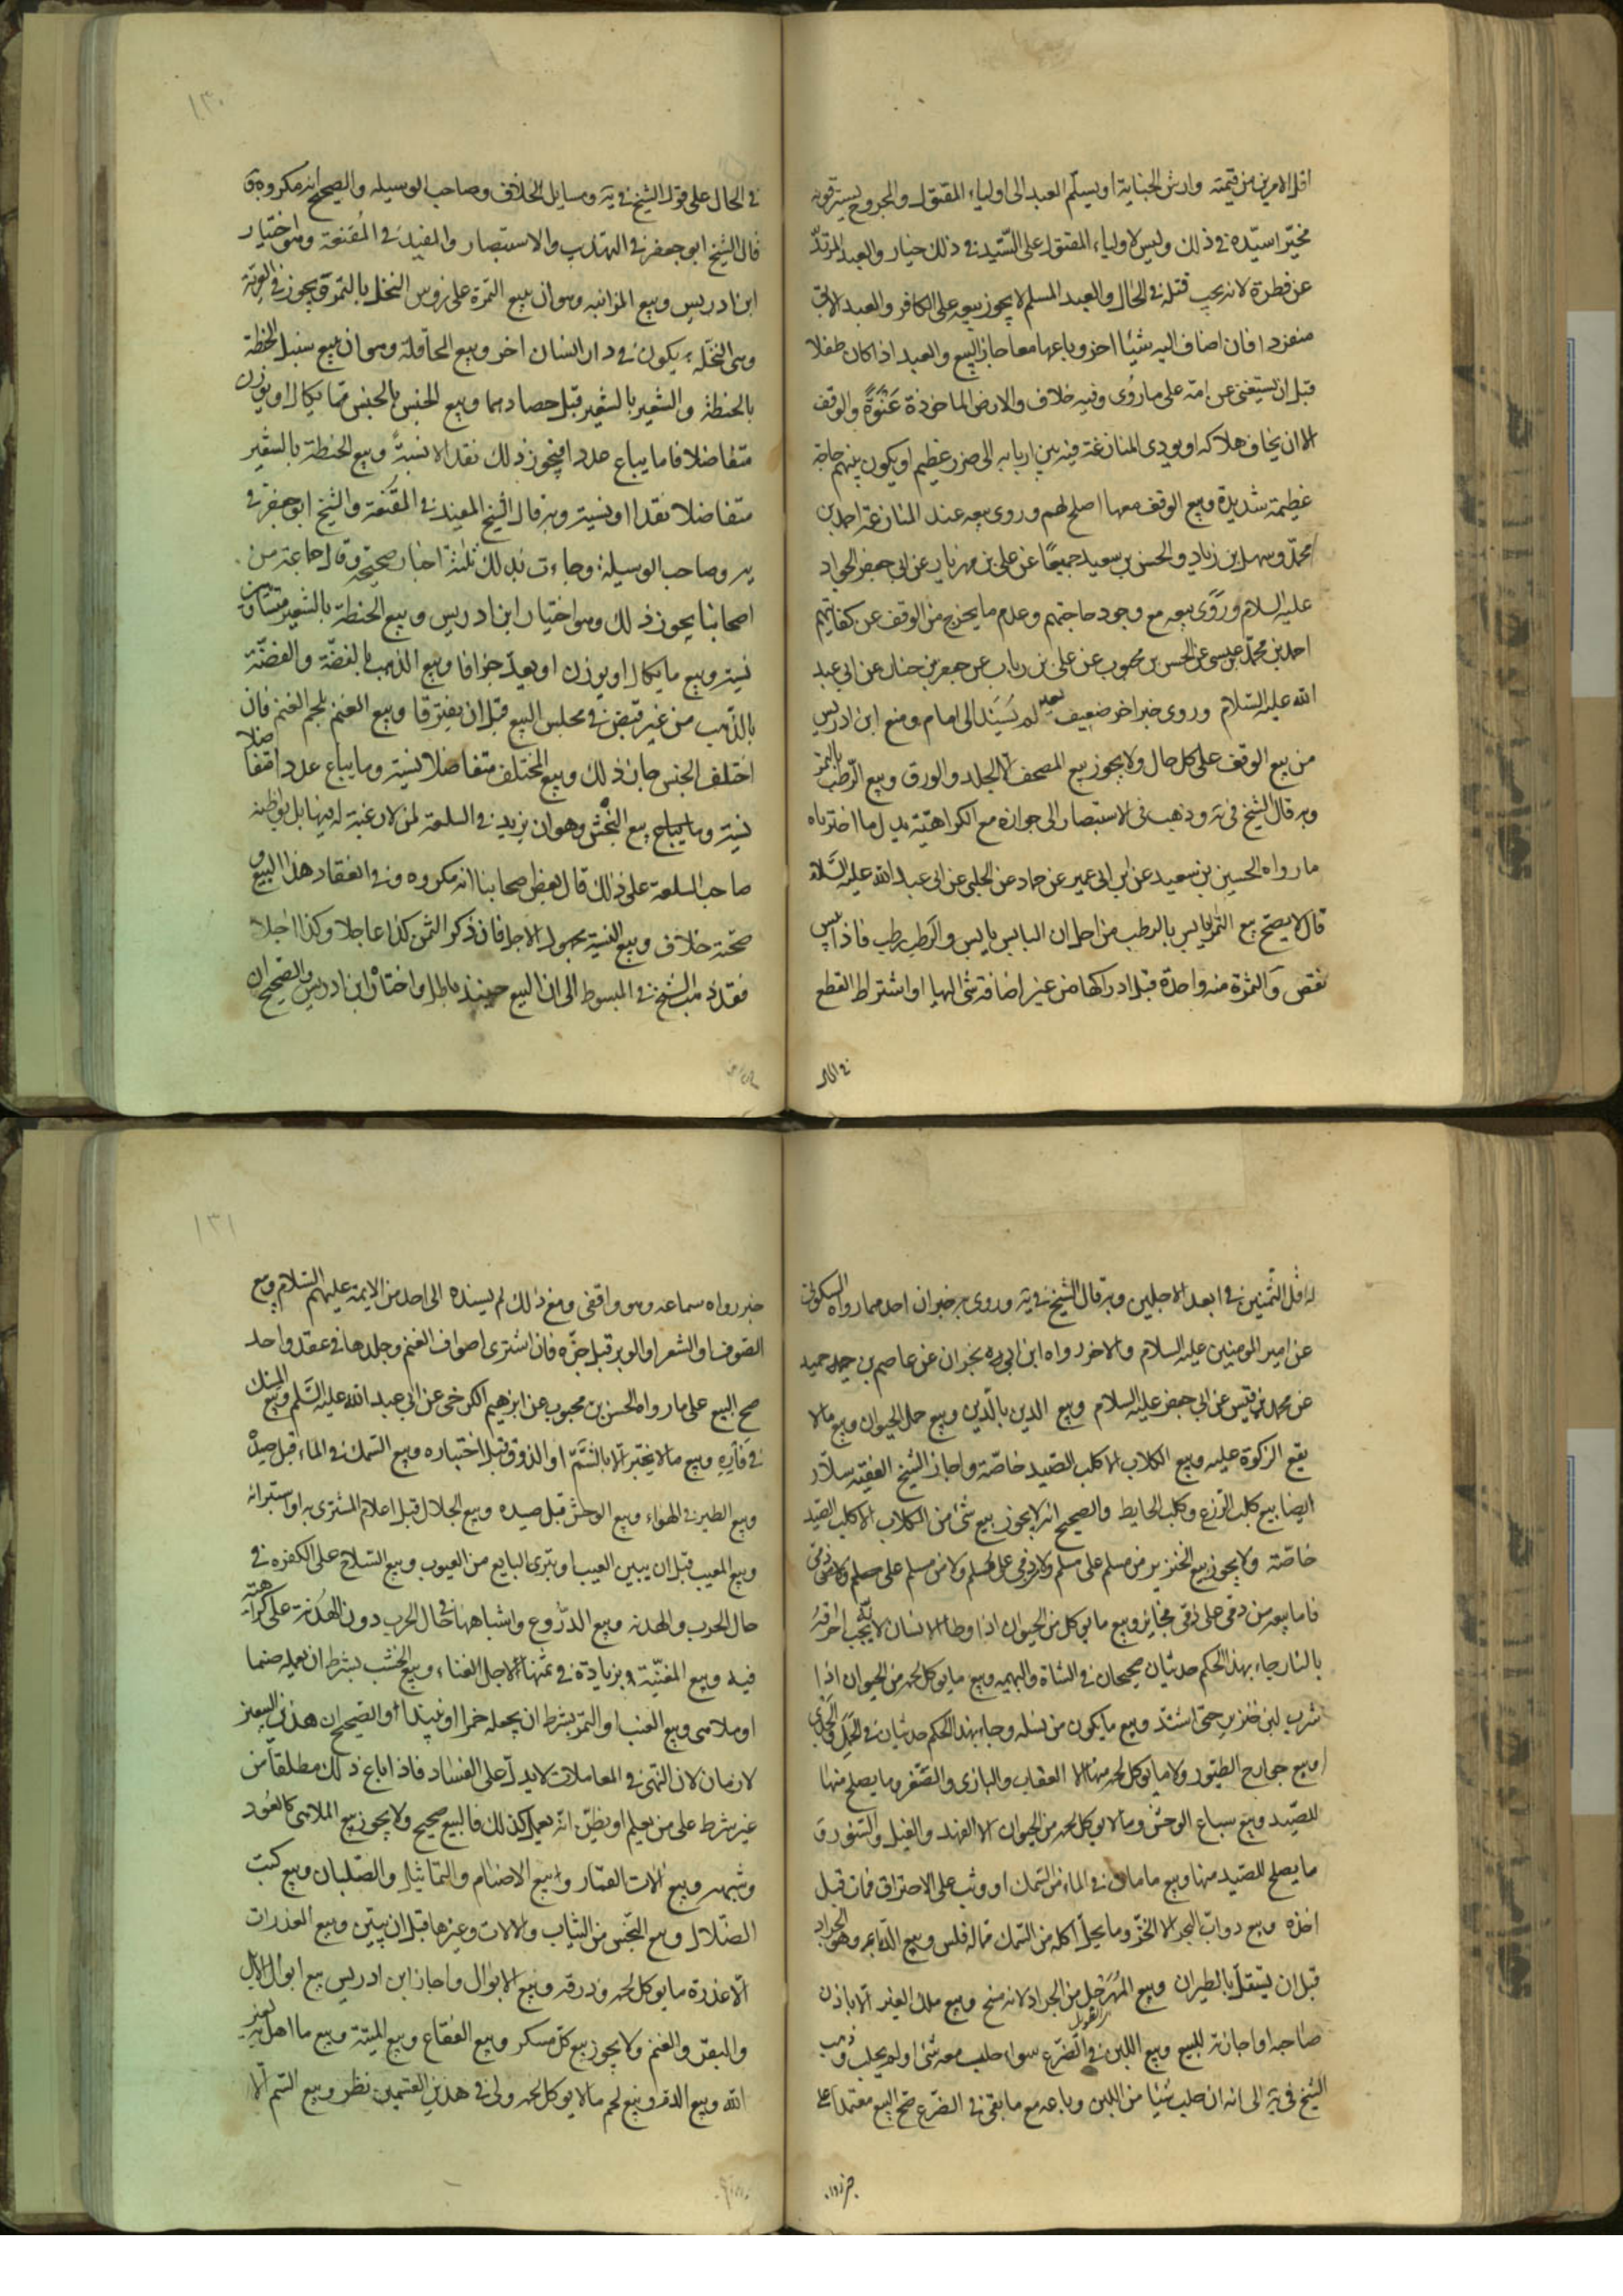 اقل الامرين من قيمته وارش الجناية او يسلّم العبد الى اولياء المقتول والمجروح يسترقونه
مخيّر سيّده في ذلك وليس لاولياء المقتول على السّيّد في ذلك خيار والعبد المرتدّ
عن فطرة لانه يجب قتله في الحال والعبد المسلم لا يجوز بيعه على الكافر والعبد الابق
منفردا فان اضاف اليه شيئا اخر وباعهما معا جاز البيع والعبد اذا كان طفلا
قبل ان يستغنى عن امّه على ما روى وفيه خلاف والارض الماخوذة عَنْوَةً والوقف
الا ان يخاف هلاكه او يودى المنازعة فيه بين اربابه الى ضرر عظيم او يكون بينهم حاجة
عظيمة شديدة وبيع الوقف معها اصلح لهم وروى بيعه عند المنازعة احمد بن
محمّد وسهل بن زياد والحسن بن سعيد جميعًا عن على بن مهزيار عن ابى جعفر الجواد
عليه السلام وروى بيعه مع وجود حاجتهم وعدم ما يخرج من الوقف عن كفايتهم
احمد بن محمّد بن عيسى عن الحسن بن محبوب عن على بن رياب عن جعفر بن حنان عن ابى عبد
الله عليه السّلام وروى خبر اخر ضعيف لم يسند الى امام ومنع ابن ادريس
من بيع الوقف على كل حال ولا يجوز بيع المصحف الا الجلد والورق وبيع الرّطب بالتمر
وبه قال الشيخ في ية وذهب فى الاستبصار الى جوازه مع الكراهيّة يدل ما اخترناه
ما رواه الحسين بن سعيد عن ابن ابى عمير عن حماد عن الحلبى عن ابى عبد الله عليه السّلام
قال لا يصلح بيع التمر اليابس بالرطب من اجل ان اليابس يابس والرطب رطب فاذا يبس
نقص والثمرة سنة واحدة قبل ادراكها من غير اضافة شئ اليها او اشتراط القطع
في الحال
١٣٠
في الحال على قول الشيخ في ية ومسايل الخلاف وصاحب الوسيله والصحيح انه مكروه و
قال الشيخ ابو جعفر في التهذيب والاستبصار والمفيد في المُقنعة وهو اختيار
ابن ادريس وبيع المزابنه وهو ان يبيع الثمرة على روس النخل بالتمر ويجوز في العريّة
وهى النخلة يكون في دار انسان اخر وبيع المحاقلة وهو ان يبيع سنبل الحنطة
بالحنطة والشعير بالشعير قبل حصادهما وبيع الجنس بالجنس مما يكال او يوزن
متفاضلا فاما يباع عددا فيجوز ذلك نقدا لا نسيةً وبيع الحنطة بالشعير
متفاضلا نقدا او نسية وبه قال الشيخ المفيد في المُقنعة والشيخ ابو جعفر في
ية وصاحب الوسيلة وجاءت بذلك ثلثة اخبار صحيحة وقال جماعة من
اصحابنا يجوز ذلك وهو اختيار ابن ادريس وبيع الحنطة بالشعير متساويين
نسية وبيع ما يكال او يوزن او يعدّ جزافا وبيع الذهب بالفضّة والفضّة
بالذّهب من غير قبض في مجلس البيع قبل ان يفترقا وبيع الغنم بلحم الغنم فان
اختلف الجنس جاز ذلك وبيع المختلف متفاضلا نسية وما يباع عددا متفاضلا
نسية وما يباع بيع النَّجْش وهو ان يزيد في السلعة لمن لا رغبة له فيها بل يواطيه
صاحب السلعة على ذلك قال بعض اصحابنا انه مكروه وفي انعقاد هذا البيع و
صحّته خلاف وبيع النسية بجهول الاجل فان ذكر الثمن كذا عاجلا وكذا اجلا
فقد ذهب الشيخ في المبسوط الى ان البيع حينئذ باطل واختاره ابن ادريس والصحيح ان
له اقل الثمنين في ابعد الاجلين وبه قال الشيخ في ية وروى به خبران احدهما رواه السكونى
عن امير المومنين عليه السلام والاخر رواه ابن ابى نجران عن عاصم بن حميد
عن محمد بن قيس عن ابى جعفر عليه السلام وبيع الدين بالدّين وبيع حمل الحيوان وبيع ما لا
يقع الزكوة عليه وبيع الكلاب الا كلب الصّيد خاصّة واجاز الشيخ الفقيه سلاّر
ايضا بيع كلب الزرع وكلب الحايط والصحيح انه لا يجوز بيع شئ من الكلاب الا كلب الصّيد
خاصّة ولا يجوز بيع الخنزير من مسلم على مسلم ولا ذمى على مسلم ولا من مسلم على ذمى
فاما بيعه من ذمى على ذمى فجايز وبيع ما يوكل من الحيوان اذا وطأه الانسان لانه يجب احراقه
بالنار جاء بهذا الحكم حديثان صحيحان في الشاة والبهيمه وبيع ما يوكل لحمه من الحيوان اذا
شرب لبن خنزير حتى اشتدّ وبيع ما يكون من نسله وجاء بهذا الحكم حديثان في الحَمَل والجَدى
وبيع جوارح الطيور ولا ما يوكل لحمه منها الا العقاب والبازى والصّقر وما يصلح منها
للصّيد وبيع سباع الوحش وما لا يوكل لحمه من الحيوان الا الفهد والفيل والسّنور و
ما يصلح للصّيد منها وبيع ما مات في الماء من السّمك او وثب على الاحتراق فمات قبل
اخذه وبيع دوابّ البحر الا الخزّ وما يحلّ اكله من السّمك مما له فلس وبيع الدّبا وهو الجراد
قبل ان يستقلّ بالطيران وبيع المُهَرْجَل من الجراد لانه مسخ وبيع ملك الغير الا باذن
صاحبه او اجازته للبيع وبيع اللبن في الضّرع سواء حلب معه شئ او لم يحلب وذهب
الشيخ في ية الى انه ان حلب شيئا من اللبن وباعه مع ما بقى في الضّرع صحّ البيع معتمدا على
خبر رواه
١٣١
خبر رواه سماعه وهو واقفى ومع ذلك لم يسنده الى احد من الائمة عليهم السّلام وبيع
الصوف او الشعر او الوبر قبل جزّه فان اشترى اصواف الغنم وجلدها في عقد واحد
صح البيع على ما رواه الحسن بن محبوب عن ابرهيم الكرخى عن ابى عبد الله عليه السّلم وبيع المسك
في فأره وبيع ما لا يختبر الا بالشّمّ او الذوق قبل اختباره وبيع السّمك في الماء قبل صيده
وبيع الطير في الهواء وبيع الوحش قبل صيده وبيع الجلال قبل اعلام المشترى به او استبرائه
وبيع المعيب قبل ان يبين العيب او يتبرّى البايع من العيوب وبيع السّلاح على الكفره في
حال الحرب والهدنه وبيع الدّروع واشباهها في حال الحرب دون الهدنة على كراهيّة
فيه وبيع المغنيّة بزيادة في ثمنها لاجل الغناء وبيع الخشب بشرط ان يعمله صنما
او ملاهى وبيع العنب او التمر بشرط ان يجعله خمرا او نبيذا والصحيح ان هذين البيعين
لازمان لان النّهى في المعاملات لا يدلّ على الفساد فاذا باع ذلك مطلقا من
غير شرط على من يعلم او يظنّ انّه يعمل كذلك فالبيع صحيح ولا يجوز بيع الملاهى كالعُود
وشبهه وبيع الات القمار وبيع الاصنام والتماثيل والصّلبان وبيع كتب
الضّلال وبيع النّجس من الثياب والالات وغيرها قبل ان يبيّن وبيع العذرات
الّا عذرة ما يوكل لحمه وذرقه وبيع الابوال واجاز ابن ادريس بيع ابوال الابل
والبقر والغنم ولا يجوز بيع كل مسكر وبيع الفقاع وبيع الميتة وبيع ما اهل به لغير
الله وبيع الدم وبيع لحم ما لا يوكل لحمه ولى في هذين القسمين نظر وبيع السّم الّا